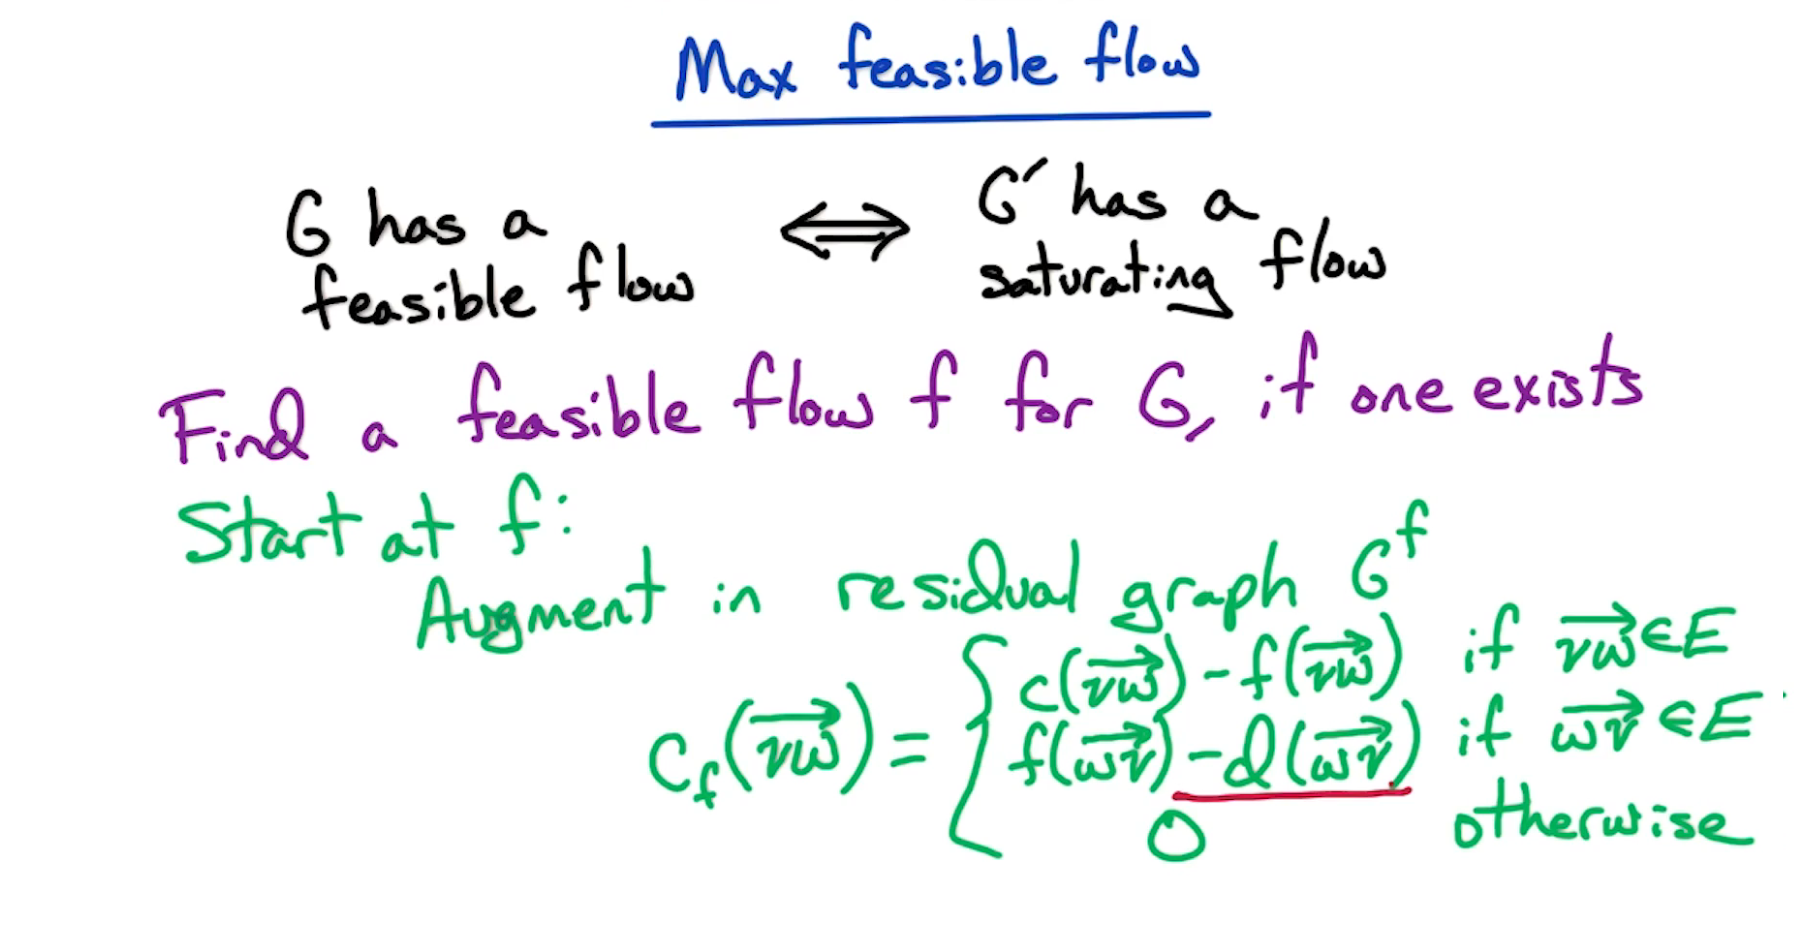 Max feasible flow
G has a
feasible flow
⟺
G′ has a
saturating flow
Find a feasible flow f for G, if one exists
Start at f:
Augment in residual graph G^f
c_f(vw→) = { c(vw→) - f(vw→) if vw→ ∈ E
f(wv→) - d(wv→) if wv→ ∈ E
0 otherwise